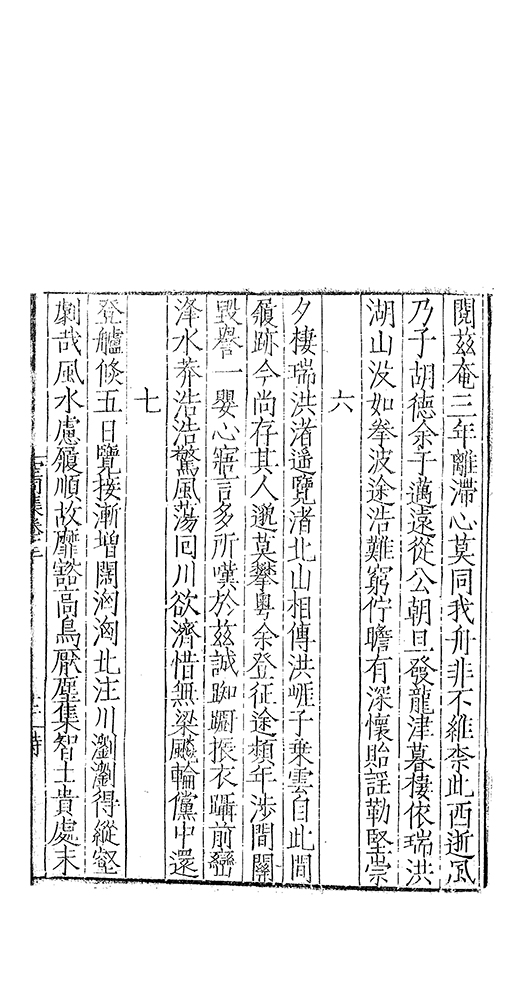 閱茲奄三年離滯心莫同我舟非不維柰此西逝風
乃子胡德余于邁遠從公朝旦發龍津暮棲依瑞洪
湖山沒如拳波途浩難窮佇瞻有深懷貽謡勒堅崇
六
夕棲瑞洪渚遥覽渚北山相傳洪崕子乗雲自此間
履跡今尚存其人邈莫攀粤余登征途頻年涉間關
毀譽一嬰心寤言多所嘆於茲誠踟躕振衣躡前巒
洚水莽浩浩驚風蕩囘川欲濟惜無梁飈輪儻中還
七
登艫倐五日覽接漸増闊洶洶北注川瀏瀏得縱壑
劇哉風水慮履順故靡豁高鳥厭塵集智士貴處末
空同集卷
詩